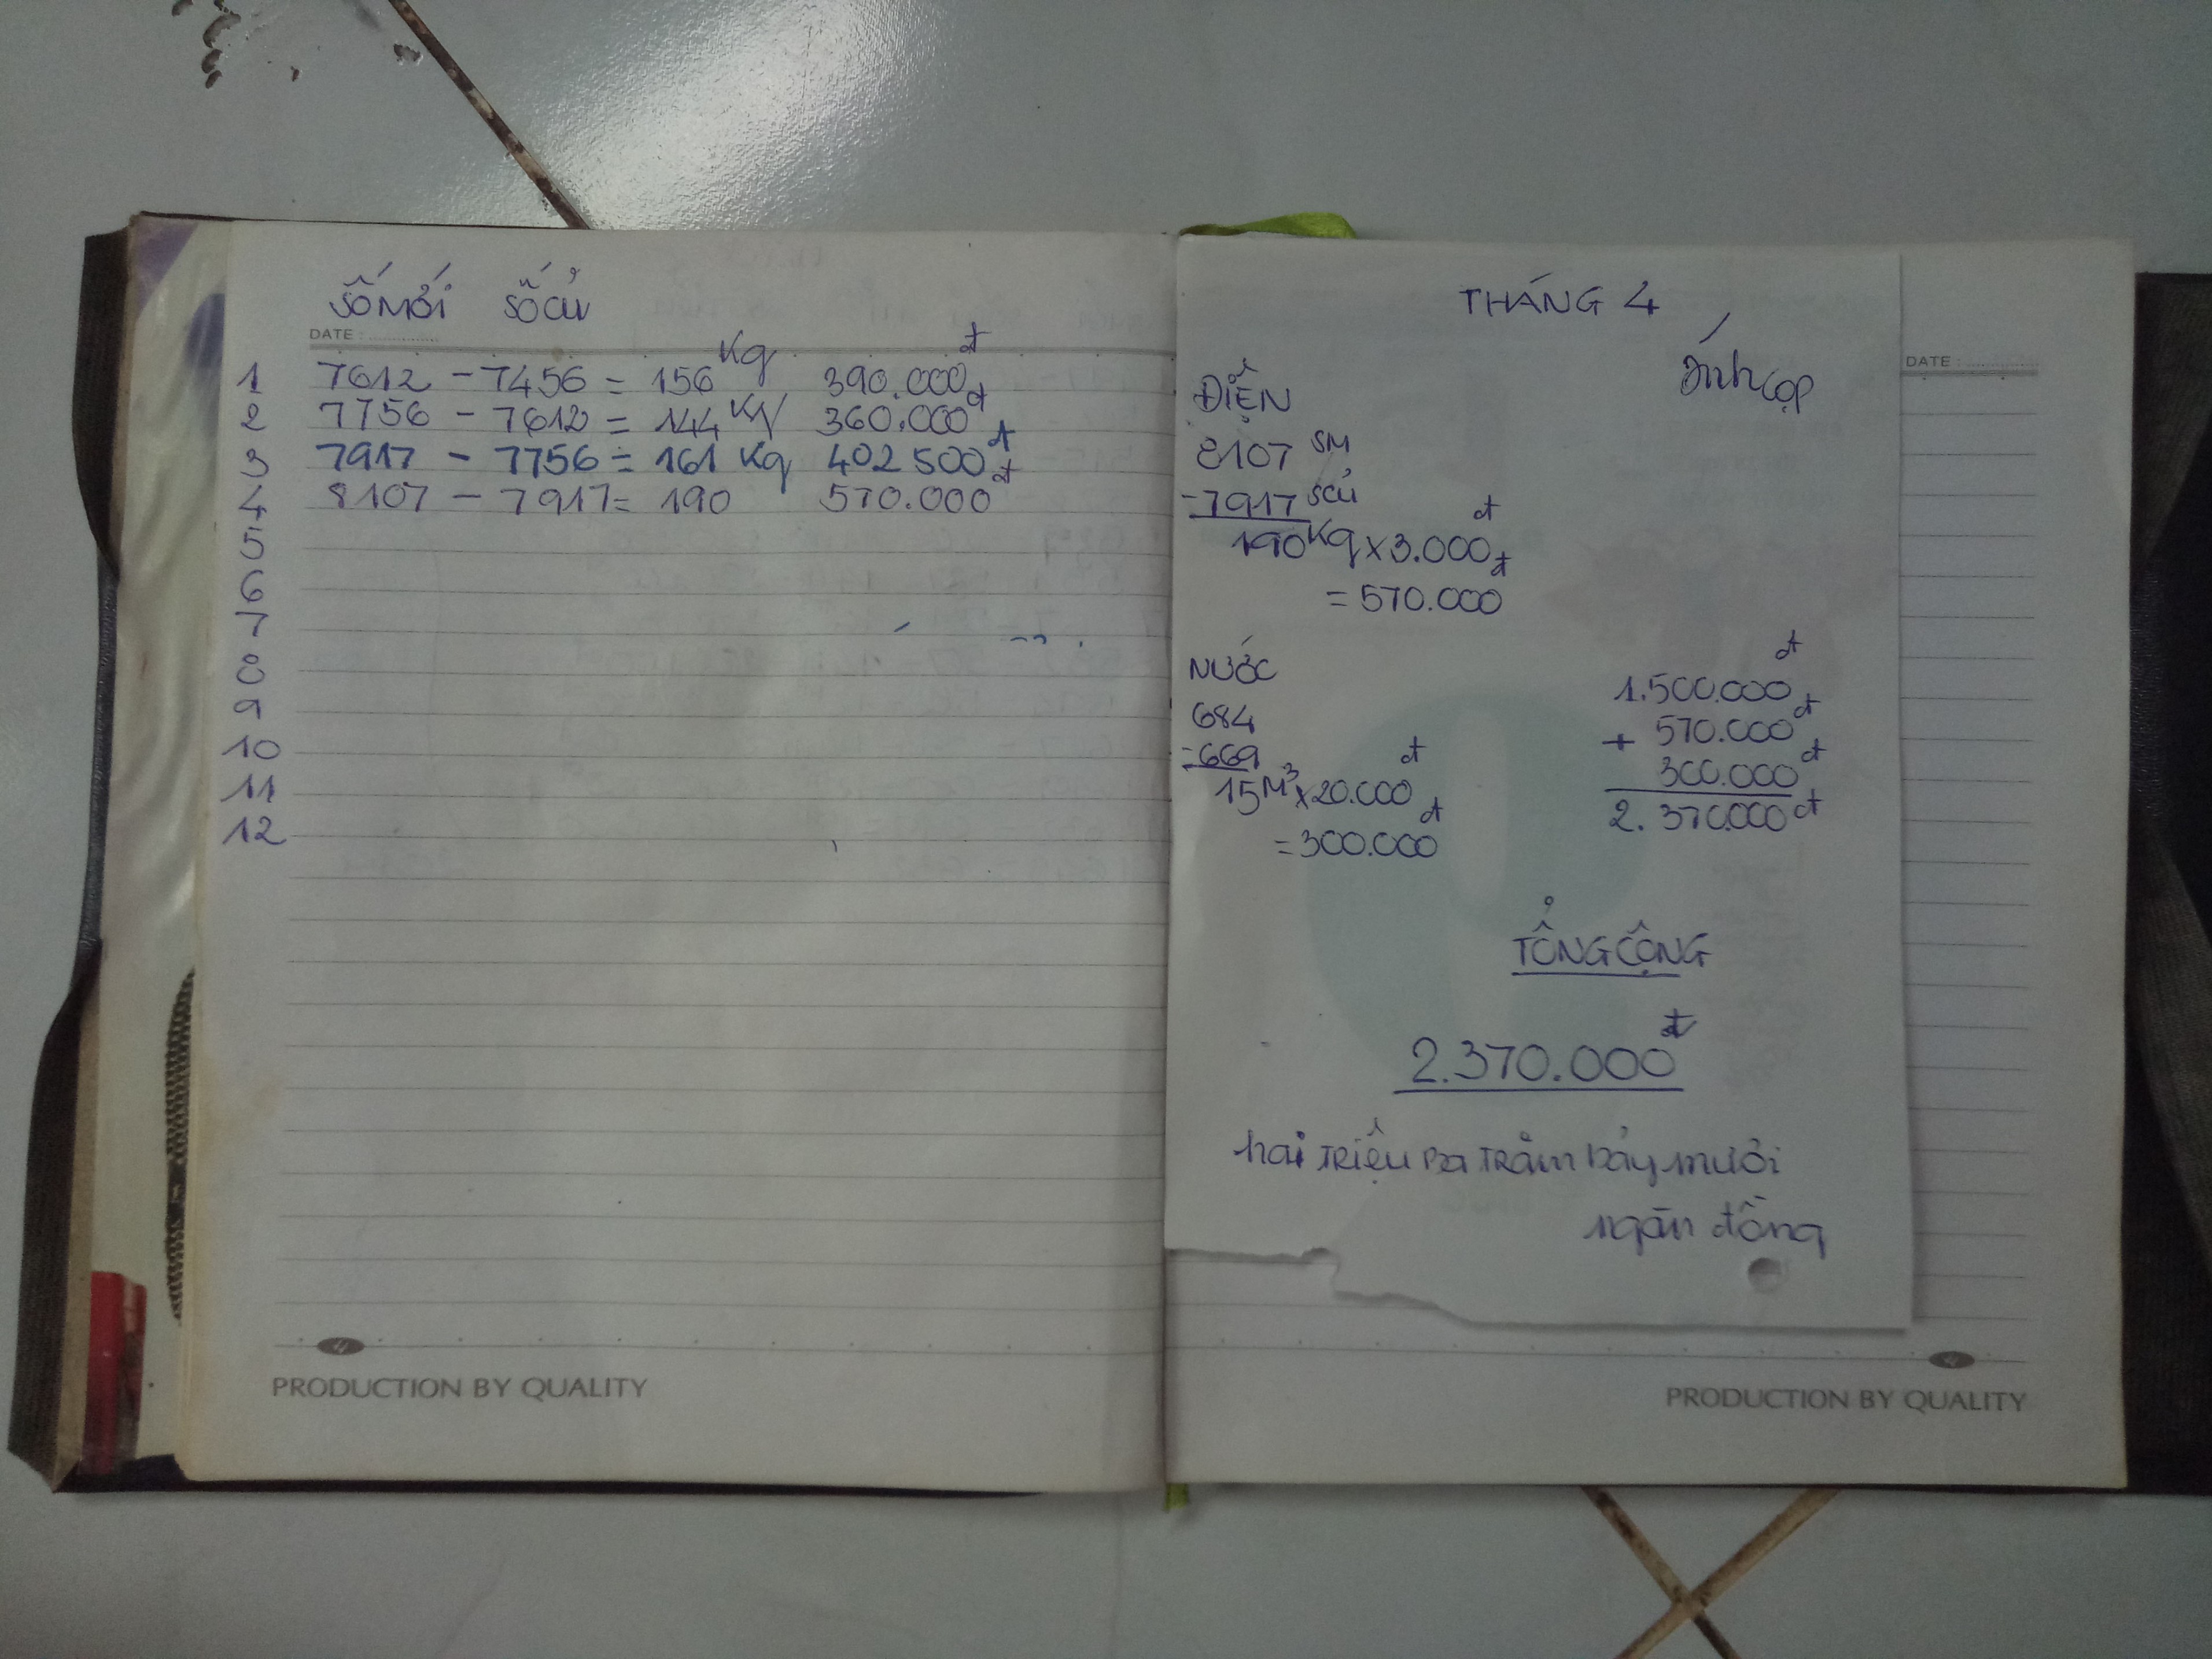 SỐ MỚI SỐ CỦ
DATE :
1 7612 - 7456 = 156 Kg 390.000đ
2 7756 - 7612 = 144 KW 360.000đ
3 7917 - 7756 = 161 Kg 402 500đ
4 8107 - 7917 = 190 570.000đ
5
6
7
8
9
10
11
12
4
PRODUCTION BY QUALITY
THÁNG 4
DATE :
ĐIỆN
8107 SM
-7917 SCỦ
190Kg x 3.000đ
= 570.000đ
NƯỚC
684
-669
15M³ x 20.000đ
= 300.000đ
1.500.000đ
+ 570.000đ
300.000đ
2.370.000đ
TỔNG CỘNG
2.370.000đ
hai TRIỆU Ba TRĂM bảy mươi
ngàn đồng
4
PRODUCTION BY QUALITY